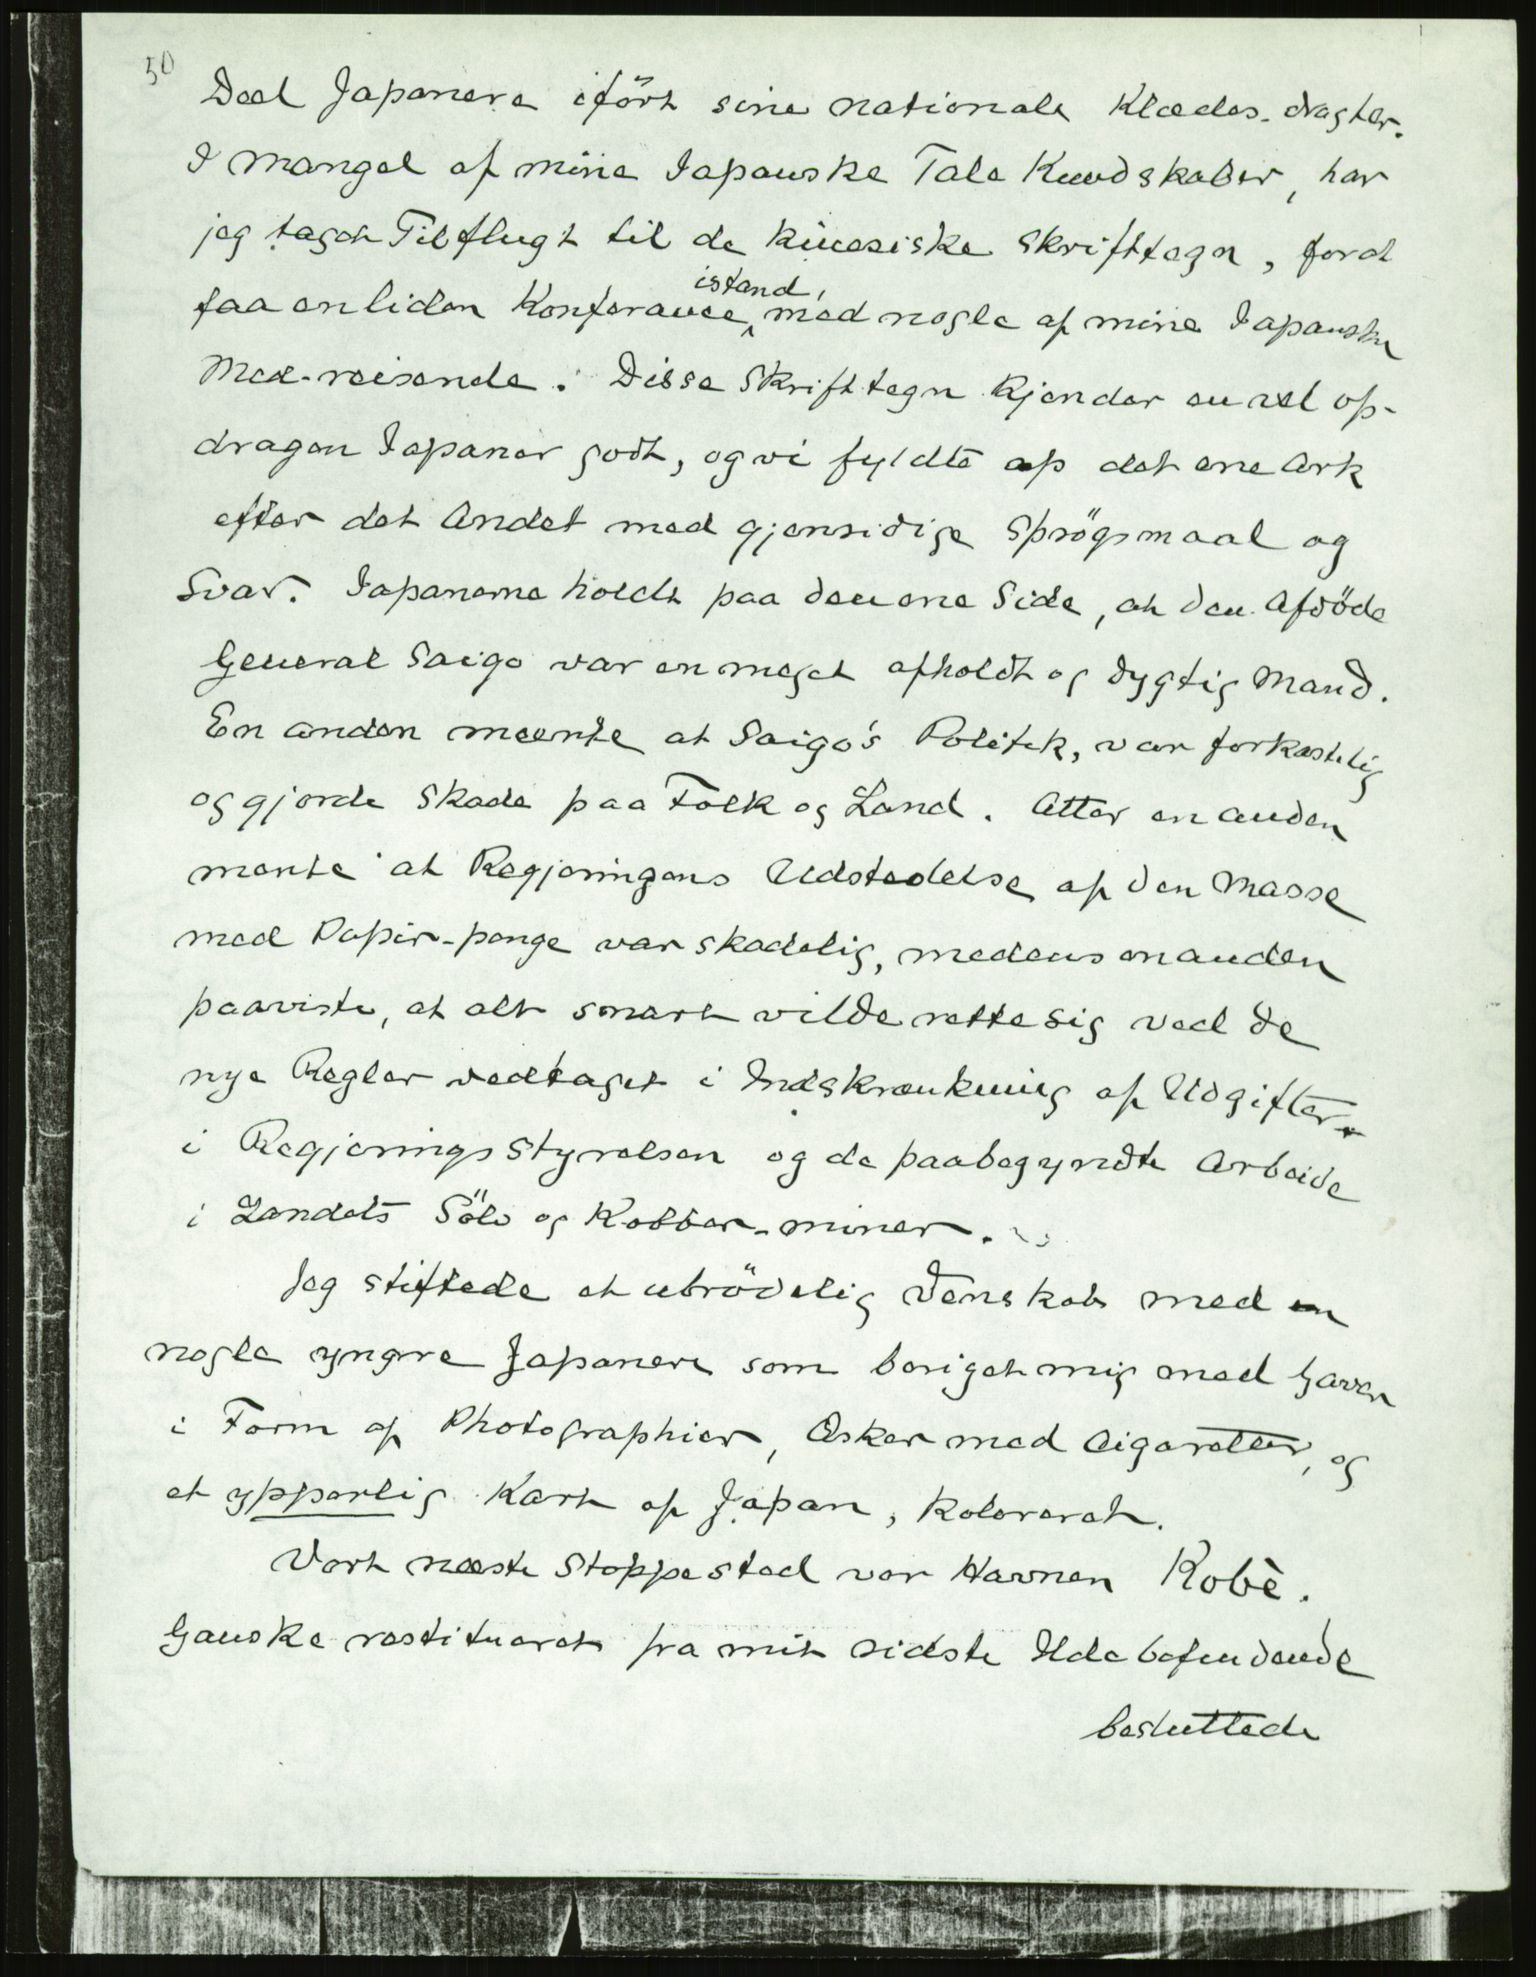 50
Deel Japanere iført sine nationale Klædes-dragter.
I Mangel af mine Japanske Tale Kundskaber, har
jeg taget Tilflugt til de kinesiske Skrifttegn, forat
faa en liden Konferance istand, med nogle af mine Japanske
Med-reisende. Disse Skrifttegn kjender en vel op-
dragen Japaner godt, og vi fyldte op det ene Ark
efter det Andet med gjensidige Sprögsmaal og
Svar. Japanerne holdt paa den ene Side, at den Afdöde
General Saigo var en meget afholdt og dygtig Mand.
En anden meente at Saigo's Politik, var forkastelig
og gjorde Skade paa Folk og Land. Atter en anden
mente at Regjeringens Udstedelse af den Masse
med Papir-penge var skadelig, medens en anden
paaviste, at alt snart vilde rette sig ved de
nye Regler vedtaget i Indskrænkning af Udgifter
i Regjerings Styrelsen og de paabegyndte Arbeide
i Landets Sölv og Kobber-miner.
Jeg stiftede et ubrödelig Venskab med
nogle yngre Japanere som beriget mig med Gaver
i Form af Photographier, Æsker med Cigaretter, og
et ypperlig Kart af Japan, koloreret.
Vort næste Stoppested var Havnen Kobè.
Ganske restitueret fra mit sidste Ildebefindende
besluttede